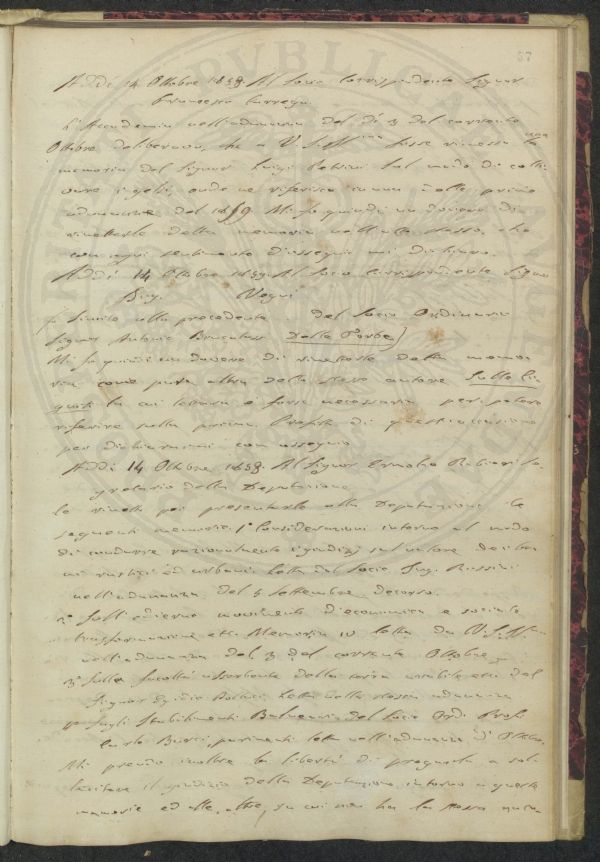 57
Addì 14 Ottobre 1858. Al Socio Corrispondente Signor
Francesco
L'Accademia nell'adunanza del dì 3 del corrente
Ottobre deliberava, che a V. S. Ill.ma fosse rimessa una
memoria del Signor Luigi Sul modo di colti-
vare i gelsi, onde ne riferisca in una delle prime
adunanze del 1859. Mi fo quindi un dovere di
rimetterle detta memoria nell'atto stesso, che
con ogni sentimento d'ossequio mi dichiaro.
Addì 14 Ottobre 1858. Al Socio Corrispondente Signor
Ing. Vegni
simile alla precedente del Socio Ordinario
Signor Antonio Delle Torbe)
Mi fo quindi un dovere di rimetterle detta memo-
ria come pure altra dello stesso autore Sulle
la cui lettura è forse necessaria per poter
riferire sulla prima. Profitto di questa occasione
per dichiararmi con ossequio
Addì 14 Ottobre 1858. Al Signor Se-
gretario della Deputazione
Le rimetto per presentarle alla Deputazione le
seguenti memorie. 1° Considerazioni intorno al modo
di condurre razionalmente i giudizj sul valore dei beni
rustici ed urbani. Letta dal Socio Ing.
nell'adunanza del 5 Settembre decorso.
2° Sull'odierno movimento d'economica e sociale
trasformazione etc. Memoria letta da V. S. Ill.ma
nell'adunanza del 3 del corrente Ottobre
3° Sulla facoltà assorbente della terra arabile etc. del
Signor letta nella stessa adunanza
4° Sugli Stabilimenti del Socio Ord. Prof.
Carlo parimenti letta nell'adunanza 3 Ottobre.
Mi prendo inoltre la libertà di pregarla a sol-
lecitare il giudizio della Deputazione intorno a queste
memorie ed alle altre, su cui non ha la stessa